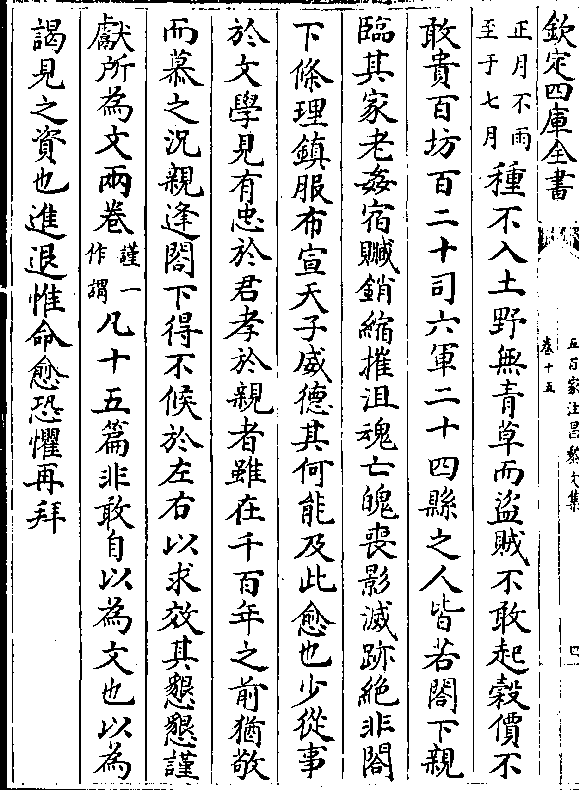 欽定四庫全書
五百家注昌黎文集
卷十五
四
正月不雨
至于七月
種不入土野無青草而盜賊不敢起穀價不
敢貴百坊百二十司六軍二十四縣之人皆若閤下親
臨其家老姦宿贓銷縮摧沮魂亡魄喪影滅跡絶非閤
下條理鎮服布宣天子威德其何能及此愈也少從事
於文學見有忠於君孝於親者雖在千百年之前猶敬
而慕之況親逢閤下得不候於左右以求效其懇懇謹
獻所為文兩卷
謹一
作謂
凡十五篇非敢自以為文也以為
謁見之資也進退惟命愈恐懼再拜